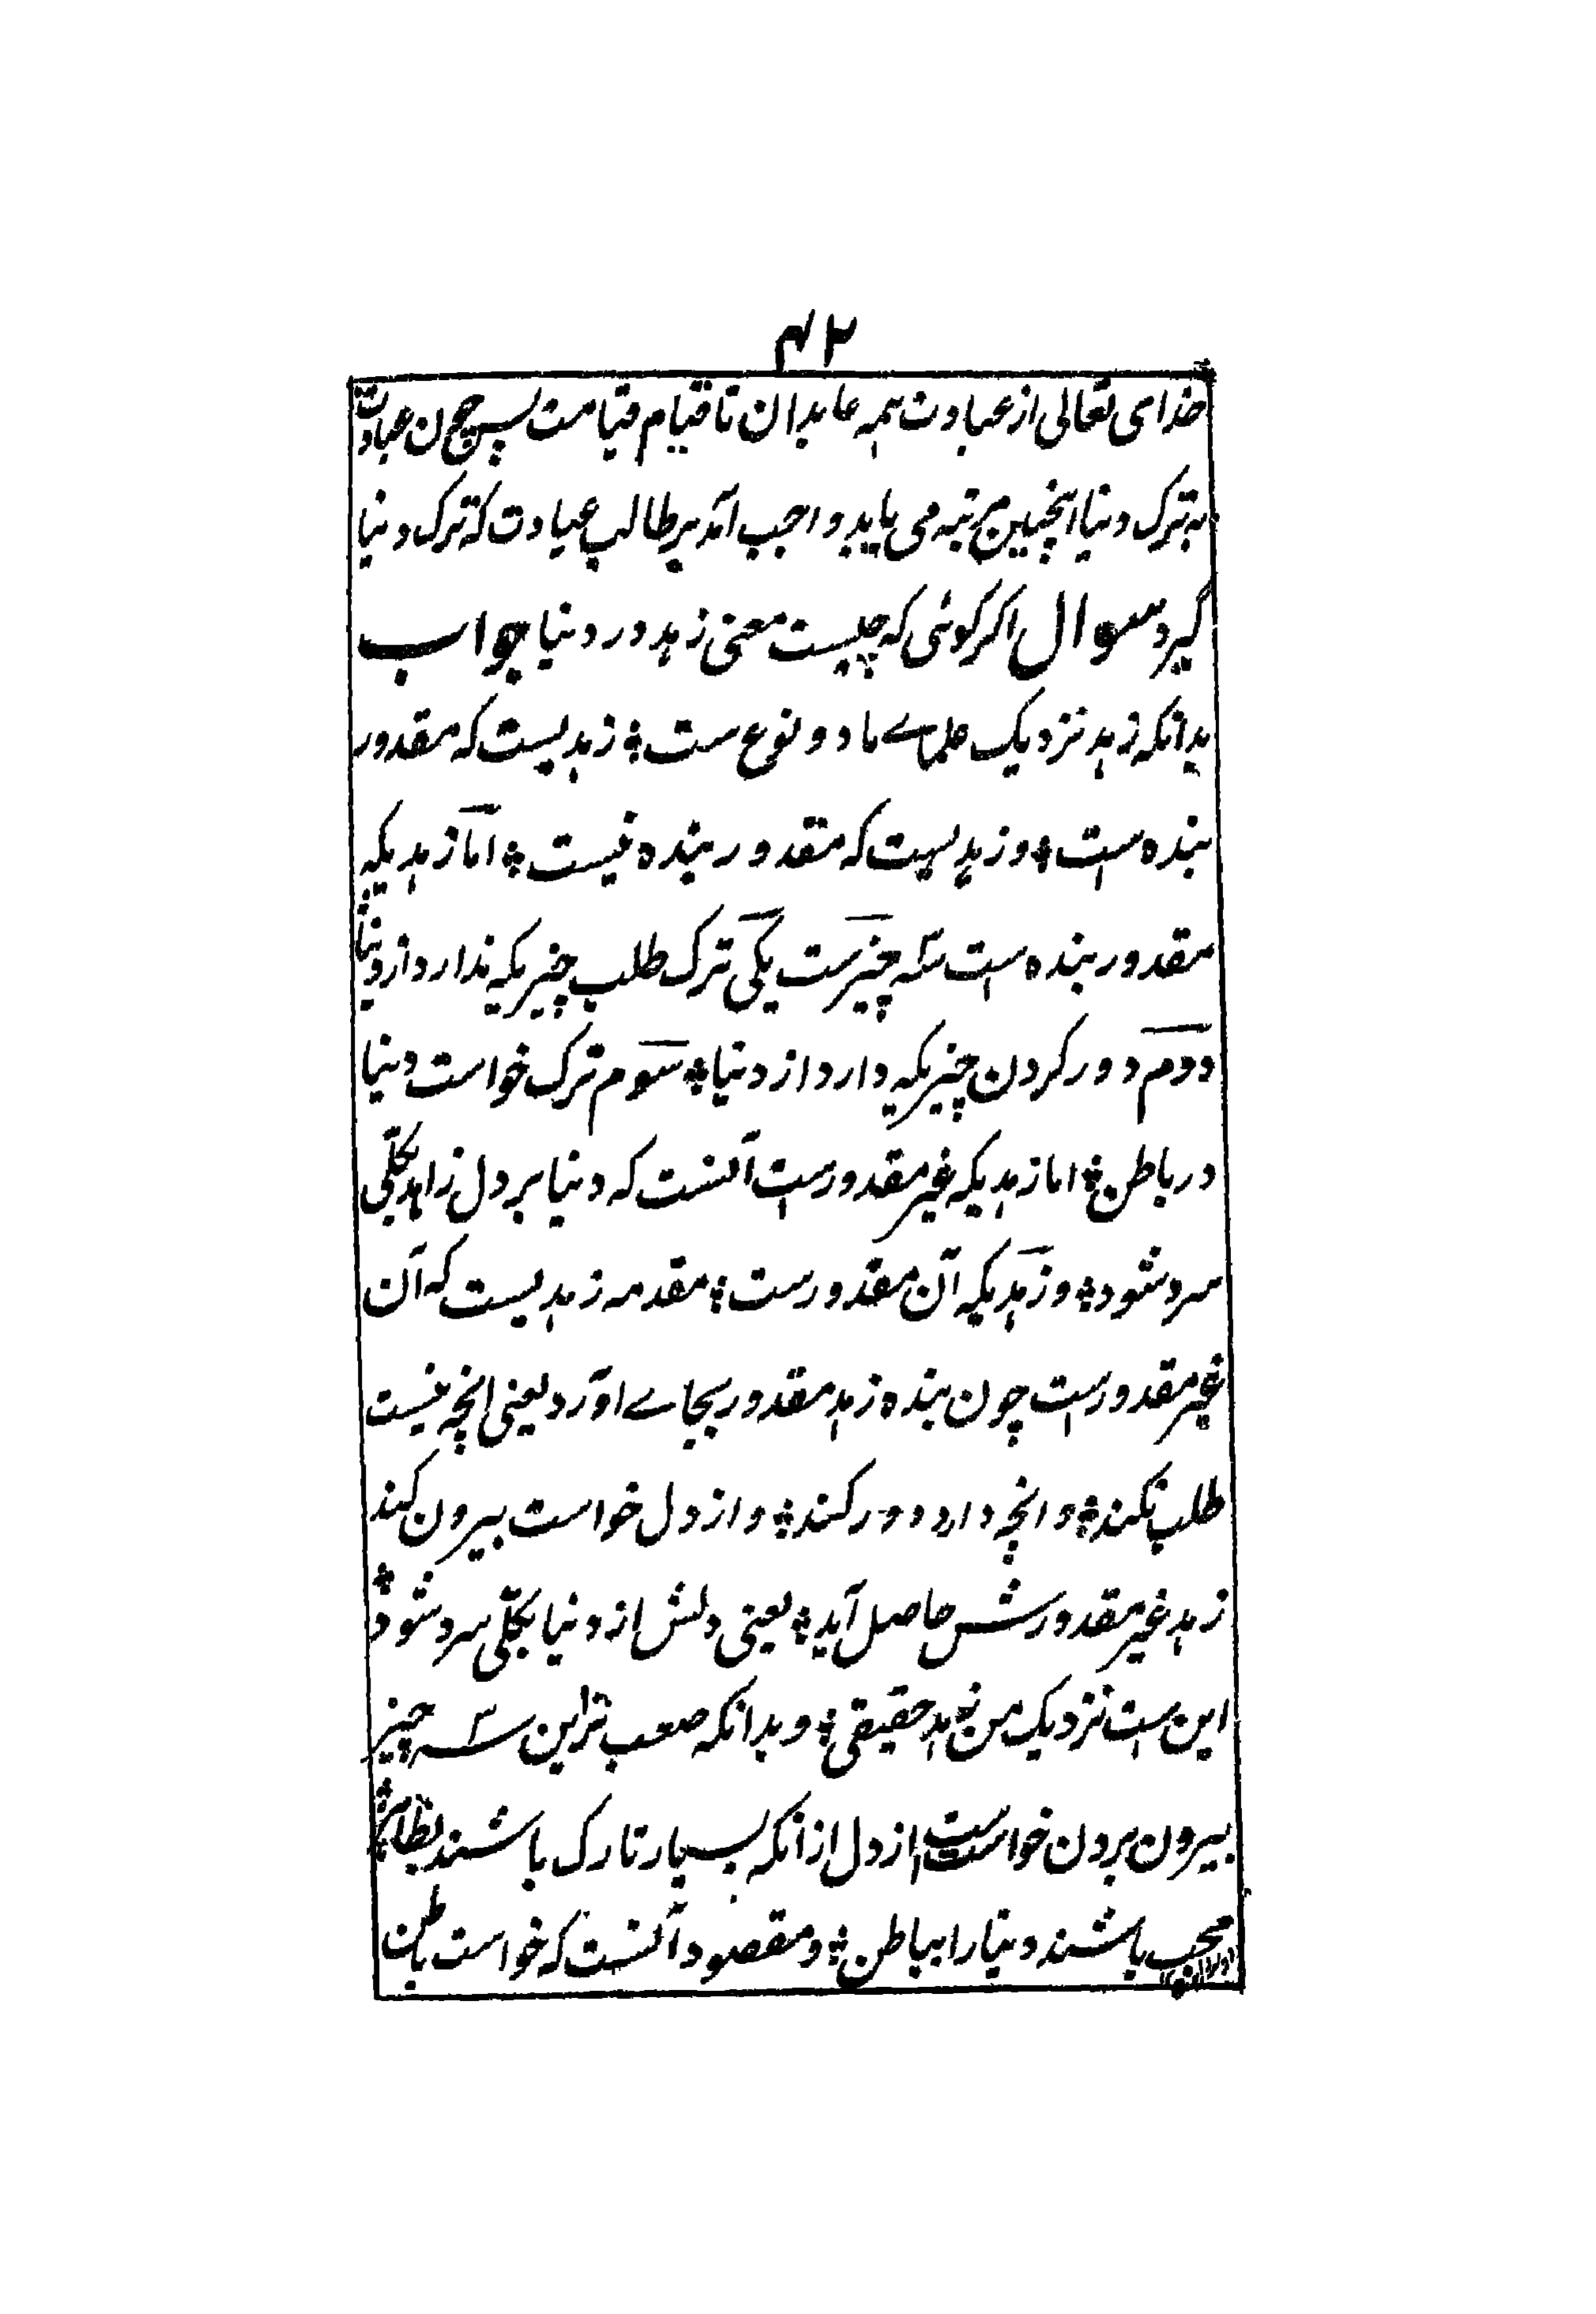 ۴۲
خدای تعالی از عبادت همه عابدان تا قیام قیامت پس چون عبادت
به ترک دنیا اینچنین مرتبه می یابد واجب آمد بر طالب عبادت که ترک دنیا
گیرد سوال اگر گوئی که چیست معنی زهد در دنیا جواب
بدانکه زهد نزدیک علماے ما دو نوع ست ؛ زهدیست که مقدور
بنده است ؛ و زهدیست که مقدور بنده نیست ؛ اما زهدیکه
مقدور بنده است سه چیزست یکی ترک طلب چیزیکه ندارد از دنیا ؛
دوم دور کردن چیزیکه دارد از دنیا ؛ سوم ترک خواست دنیا
در باطن ؛ اما زهدیکه غیر مقدورست آنست که دنیا بر دل زاهد بکلّی
سرد شود ؛ و زهدیکه آن مقدورست ؛ مقدمه زهدیست که آن
غیر مقدورست چون بنده زهد مقدور بجاے آورد یعنی انچه نیست
طلب نکند ؛ و انچه دارد دور کند ؛ و از دل خواست بیرون کند
زهد غیر مقدورش حاصل آید ؛ یعنی دلش از دنیا بکلّی سرد شود ؛
این ست نزدیک من زهد حقیقی ؛ و بدانکه صعب تر این سه چیز
بیرون بردن خواست ست از دل از انکه بسیار تارک باشند بظاهر ؛
محب باشند دنیا را بباطن ؛ و مقصود آنست که خواست باطن